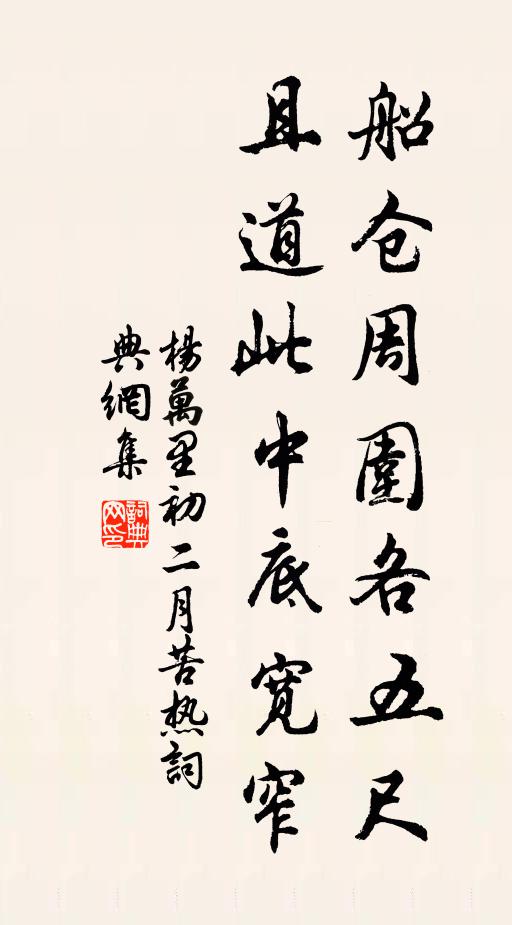 船仓周圍各五尺
且道此中底寬窄
楊萬里初二月苦热詞
典網集
詞典
网印